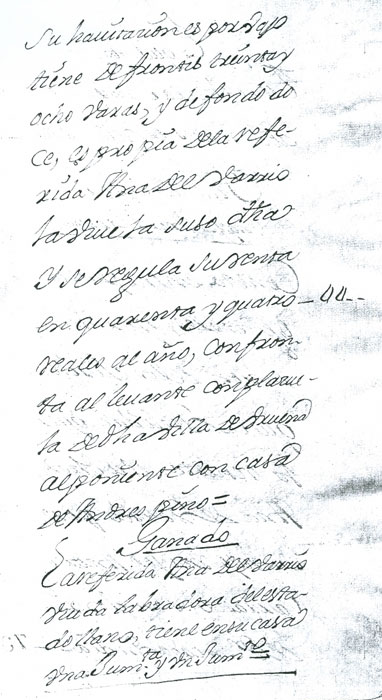 Su havitazion es por vajo
tiene de frontis treinta y
ocho varas, y de fondo do
ce, es propia de la refe-
rida Ana del Varrio
la vive la suso dha
y se regula su renta
en quarenta y quatro – 44 –
reales al año, confron-
ta al levante con plazue-
la de dha villa de
al poniente con casa
de Andres pino =
Ganado
La referida Ana del Varrio
viuda labradora del esta-
do llano, tiene en su casa
una Jumta y un Jumto